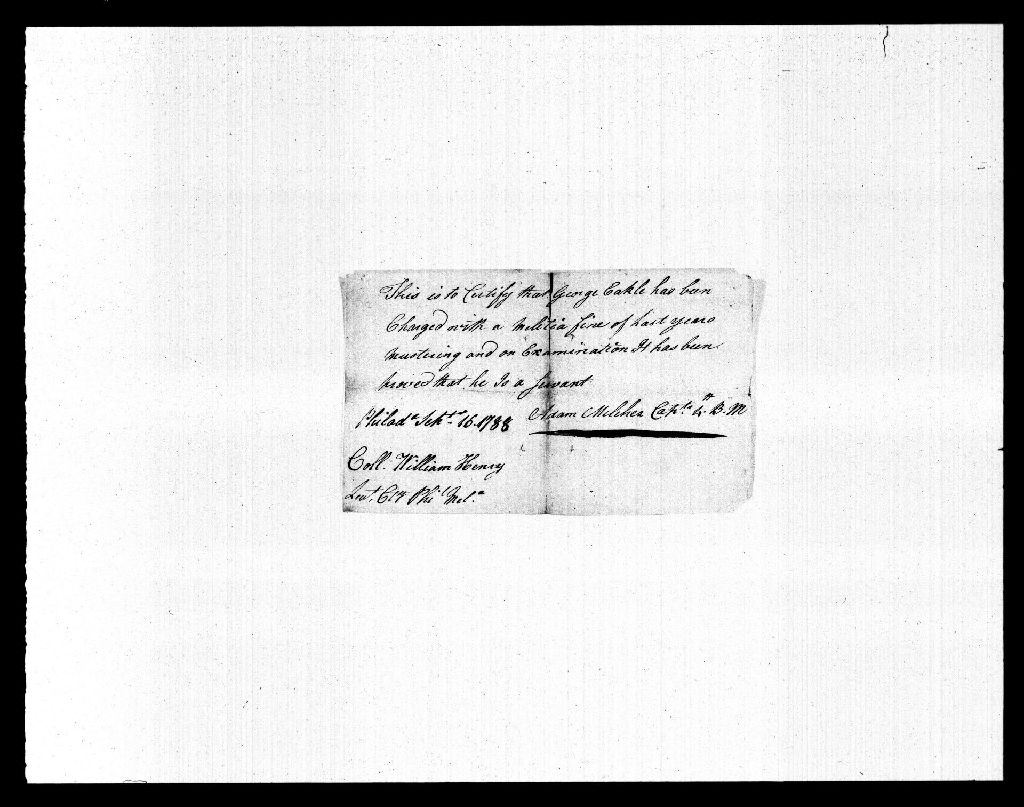 This is to Certify that George Eakle has been
Charged with a Melitia fine of Last years
Mustering and on Examination It has been
proved that he Is a servant
Philad.a Sept.r 15. 1788 Adam Melcher Capt.n 4th B. M
Coll. William Henry
Leu.t Cty Phi.l Mel.a